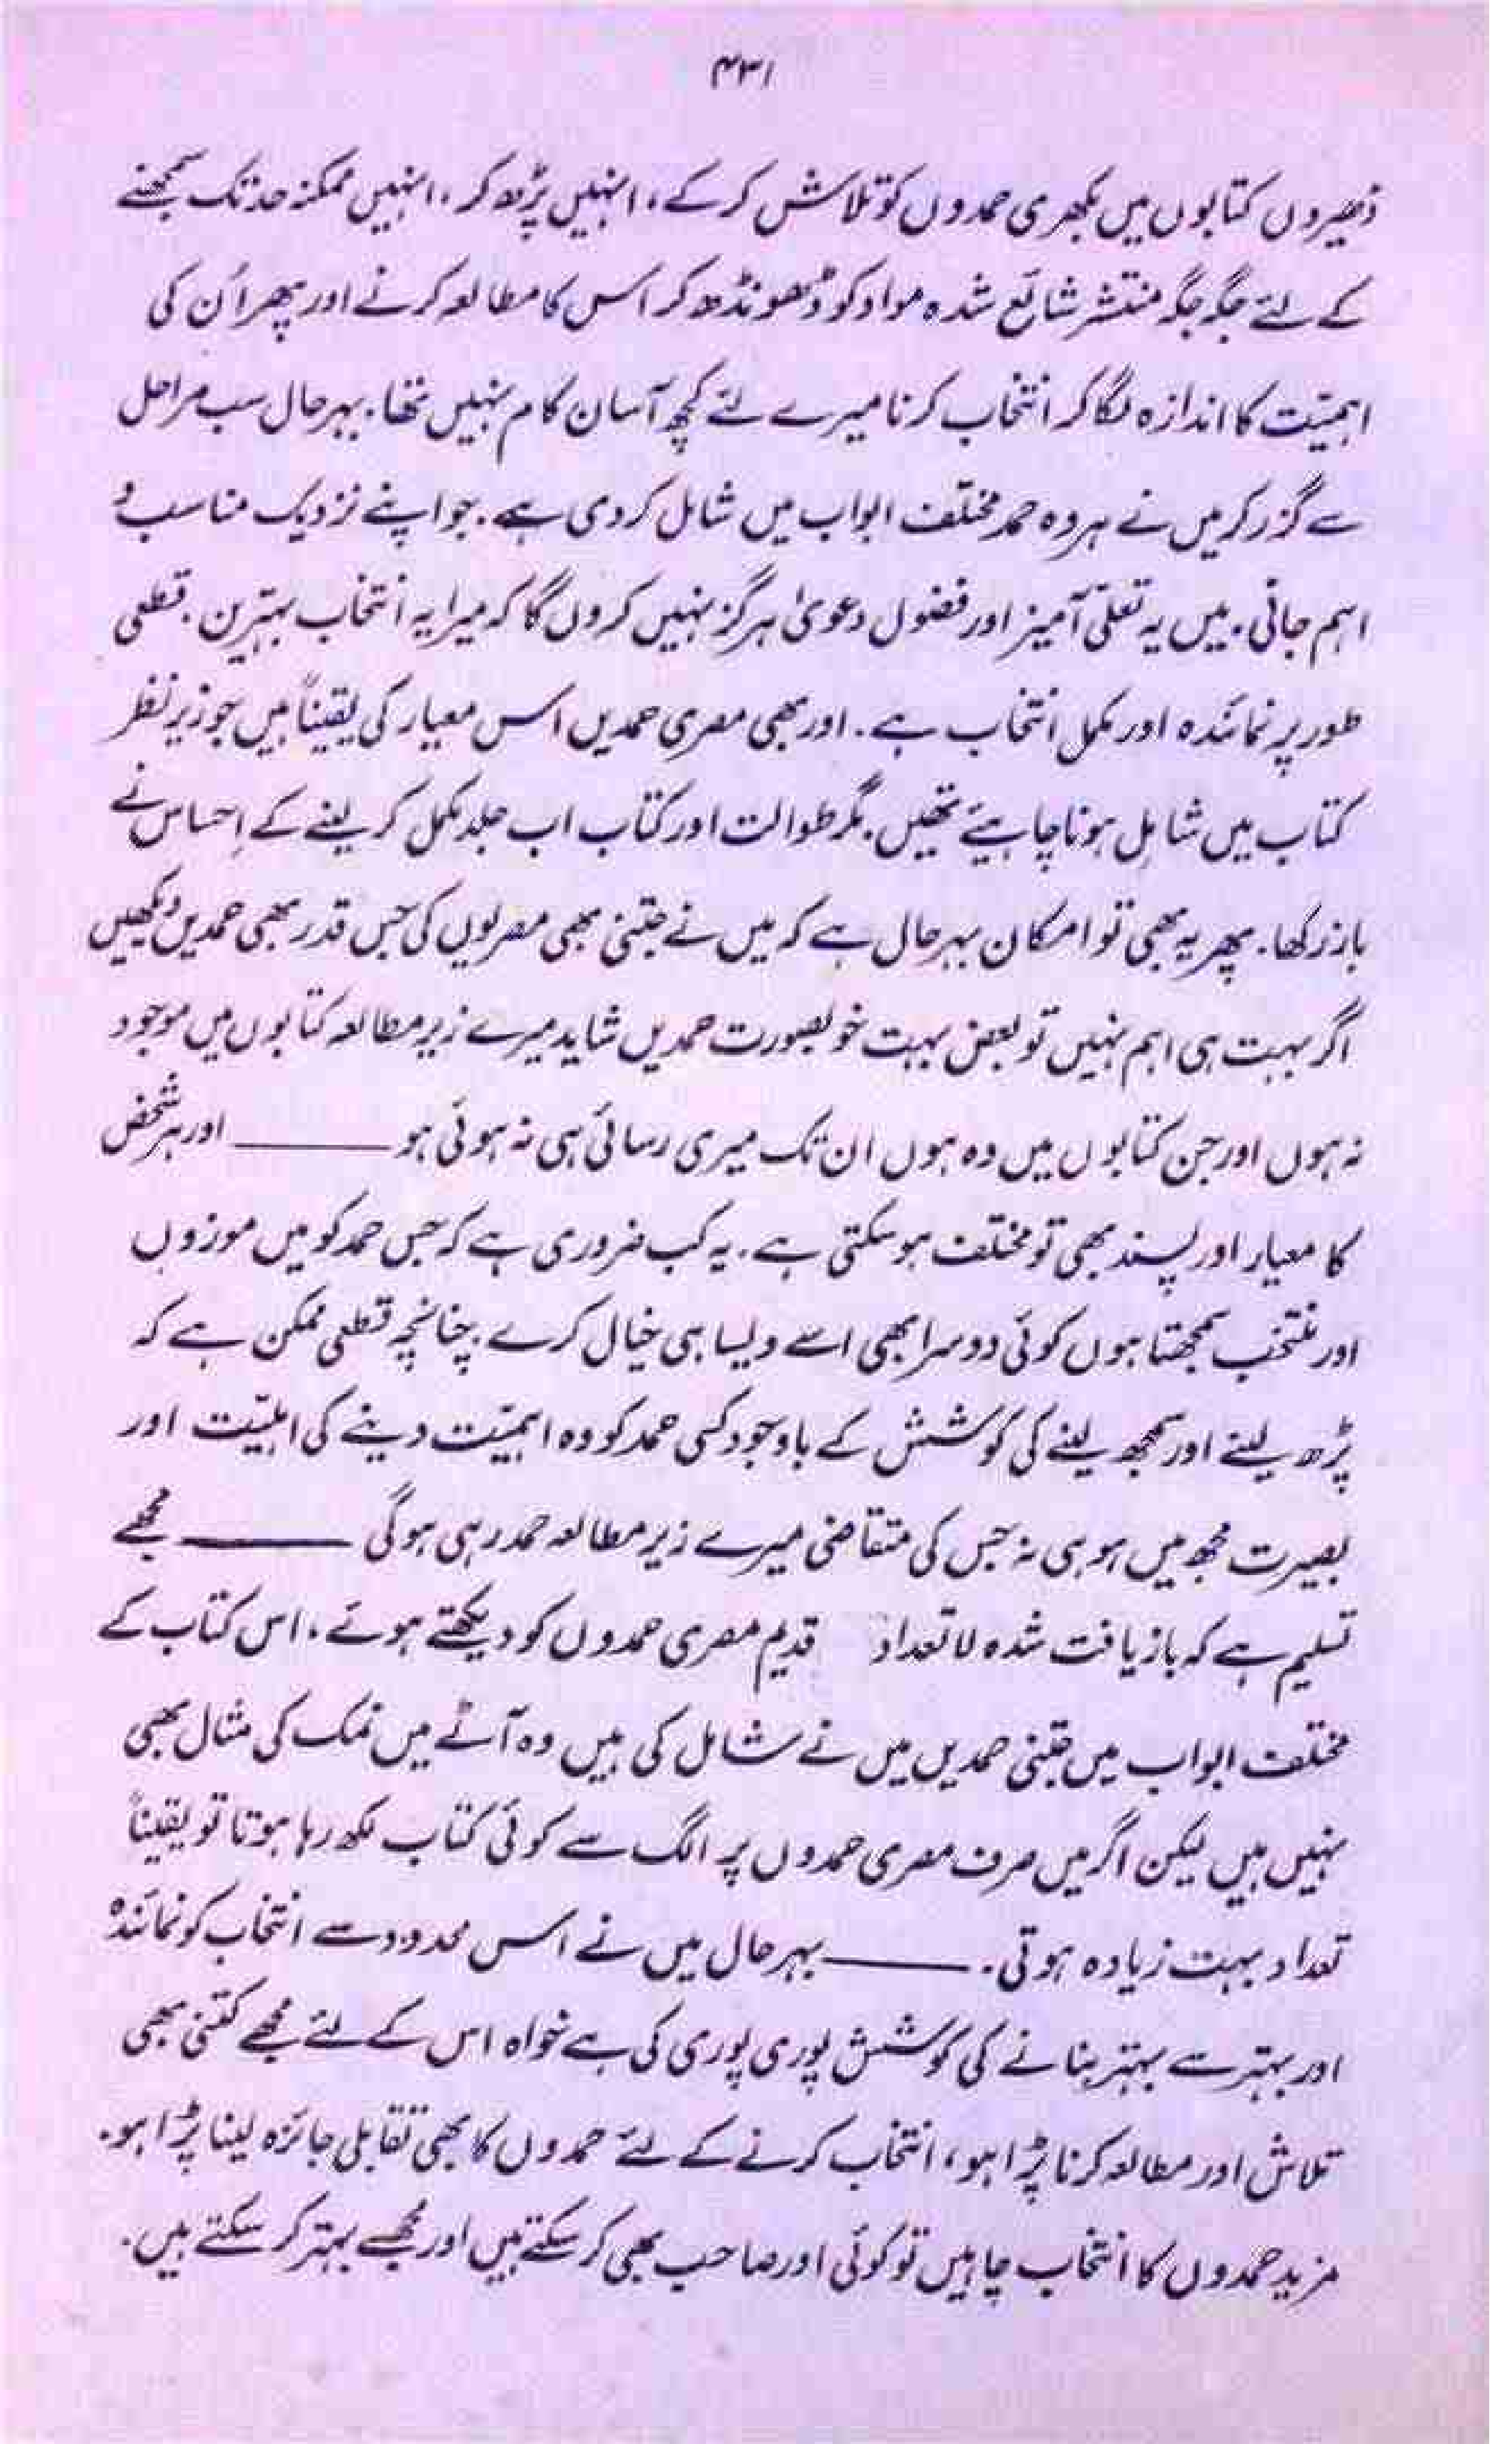 ۴۳۱
ڈھیروں کتابوں میں بکھری حمدوں کو تلاش کر کے، انہیں پڑھ کر، انہیں ممکنہ حد تک سمجھنے
کے لئے جگہ جگہ منتشر شائع شدہ مواد کو ڈھونڈھ کر اس کا مطالعہ کرنے اور پھر اُن کی
اہمیّت کا اندازہ لگا کر انتخاب کرنا میرے لئے کچھ آسان کام نہیں تھا۔ بہرحال سب مراحل
سے گزر کر میں نے ہر وہ حمد مختلف ابواب میں شامل کر دی ہے۔ جو اپنے نزدیک مناسب و
اہم جانی۔ میں یہ تعلّی آمیز اور فضول دعویٰ ہرگز نہیں کروں گا کہ میرا یہ انتخاب بہترین۔ قطعی
طور پر نمائندہ اور مکمل انتخاب ہے۔ اور بھی مصری حمدیں اس معیار کی یقیناً ہیں جو زیر نظر
کتاب میں شامِل ہونا چاہیئے تھیں۔ مگر طوالت اور کتاب اب جلد مکمل کر لینے کے اِحساس نے
باز رکھا۔ پھر یہ بھی تو امکان بہرحال ہے کہ میں نے جتنی بھی مصریوں کی جس قدر بھی حمدیں دیکھیں
اگر بہت ہی اہم نہیں تو بعض بہت خوبصورت حمدیں شاید میرے زیر مطالعہ کتابوں میں موجود
نہ ہوں اور جن کتابوں میں وہ ہوں ان تک میری رسائی ہی نہ ہوئی ہو ——— اور ہر شخص
کا معیار اور پسند بھی تو مختلف ہو سکتی ہے۔ یہ کب ضروری ہے کہ جس حمد کو میں موزوں
اور منتخب سمجھتا ہوں کوئی دوسرا بھی اسے ویسا ہی خیال کرے۔ چنانچہ قطعی ممکن ہے کہ
پڑھ لینے اور سمجھ لینے کی کوشش کے باوجود کسی حمد کو وہ اہمیّت دینے کی اہلیّت اور
بصیرت مجھ میں ہو ہی نہ جس کی متقاضی میرے زیر مطالعہ حمد رہی ہوگی ——— مجھے
تسلیم ہے کہ بازیافت شدہ لاتعداد قدیم مصری حمدوں کو دیکھتے ہوئے، اس کتاب کے
مختلف ابواب میں جتنی حمدیں میں نے شامل کی ہیں وہ آٹے میں نمک کی مثال بھی
نہیں ہیں لیکن اگر میں صرف مصری حمدوں پر الگ سے کوئی کتاب لکھ رہا ہوتا تو یقیناً
تعداد بہت زیادہ ہوتی۔ ——— بہرحال میں نے اس محدود سے انتخاب کو نمائندہ
اور بہتر سے بہتر بنانے کی کوشش پوری پوری کی ہے خواہ اس کے لئے مجھے کتنی بھی
تلاش اور مطالعہ کرنا پڑا ہو، انتخاب کرنے کے لئے حمدوں کا بھی تقابلی جائزہ لینا پڑا ہو۔
مزید حمدوں کا انتخاب چاہیں تو کوئی اور صاحب بھی کر سکتے ہیں اور مجھ سے بہتر کر سکتے ہیں۔